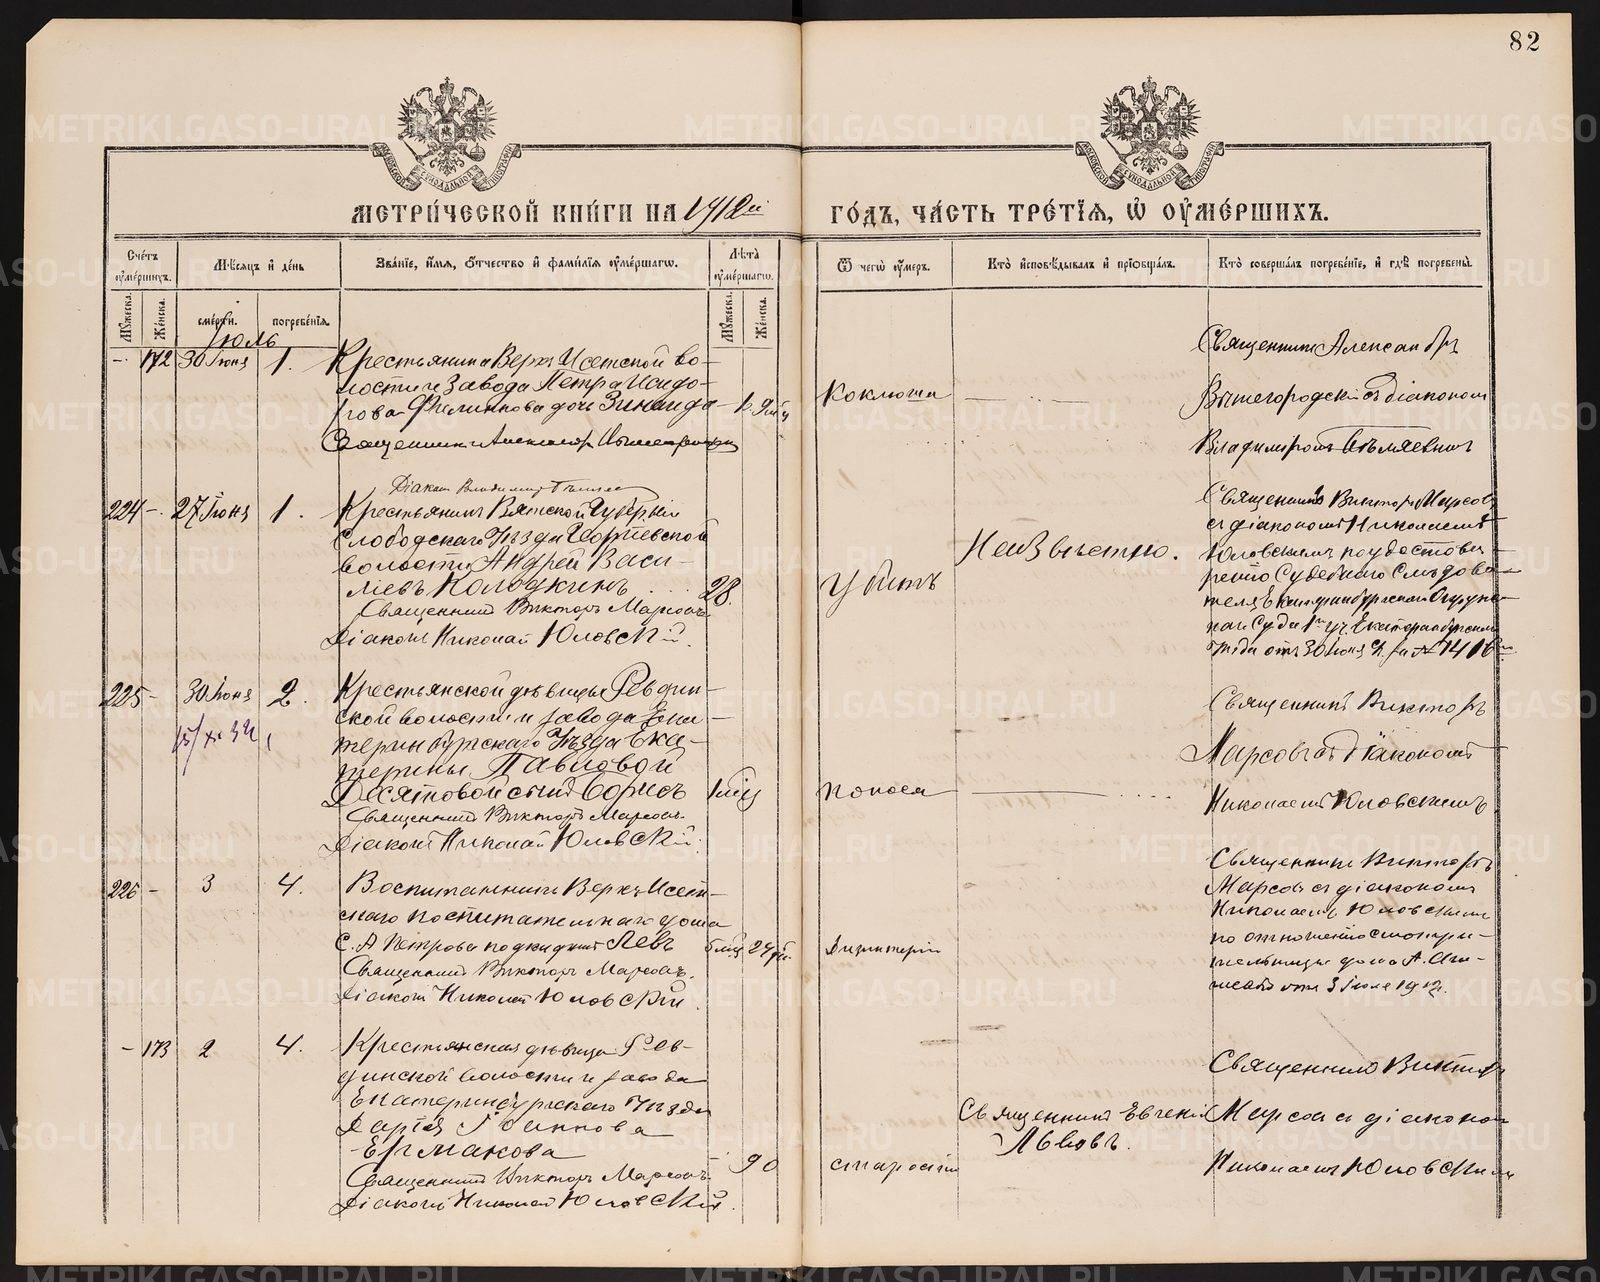 82
МЕТРИ́ЧЕСКОЙ КНИ́ГИ НА 1912й ГО́ДЪ, ЧА́СТЬ ТРЕ́ТІЯ, Ѡ ОУМЕ́РШИХЪ.
Сче́тъ оуме́ршихъ.
Мѣсяцъ и де́нь
Зва́ніе, и́мя, ѻ́тчество и фами́лія оуме́ршагѡ.
Лѣта̀ оуме́ршагѡ.
Ѿ чегѡ̀ оу́меръ.
Кто̀ исповѣ́дывалъ и пріѡбща́лъ.
Кто̀ соверша́лъ погребе́ніе, и гдѣ̀ погребены̀.
Мꙋ́жеска. Же́нска. сме́рти. погребе́нія. Мꙋ́жеска. Же́нска.
Іюль
– 172 30 Іюня 1.
Крестьянина Верхъ Исетской во-
лости и завода Петра Исидо-
рова Филиппова дочь Зинаида
Священникъ Александръ
Діаконъ Владимиръ
Коклюша
Священникъ Александръ
Вышегородскій съ діакономъ
Владиміромъ
224 – 27 Іюня 1.
Крестьянинъ Вятской Губерніи
Слободскаго Уѣзда Георгіевской
волости Андрей Васи-
льевъ Колодкинъ 28.
Священникъ Викторъ Марсовъ
Діаконъ Николай Юловскій.
Убитъ
Неизвѣстно.
Священникъ Викторъ Марсовъ
съ діакономъ Николаемъ
Юловскимъ по удостовѣ-
ренію Судебнаго Слѣдова-
теля Екатеринбургскаго Окруж-
наго Суда 1го уч. Екатеринбургскаго
уѣзда отъ 30 Іюня за № 1416
225 – 30 Іюня 2.
Крестьянской дѣвицы Ревдин-
ской волости и завода Ека-
теринбургскаго Уѣзда Ека-
терины Павловой
Десятовой сынъ Борисъ 1 мѣц
Священникъ Викторъ Марсовъ
Діаконъ Николай Юловскій.
поноса
Священникъ Викторъ
Марсовъ съ Діакономъ
Николаемъ Юловскимъ.
226 – 3 4.
Воспитанникъ Верхъ Исет-
скаго воспитательнаго дома
С. А. Петрова подкидышъ Левъ
Священникъ Викторъ Марсовъ.
Діаконъ Николай Юловскій.
Дизентеріи
Священникъ Викторъ
Марсовъ съ діакономъ
Николаемъ Юловскимъ
по отношенію смотри-
тельницы дома
отъ 3 Іюля 1912.
– 173 2 4.
Крестьянская дѣвица Рев-
динской волости и завода
Екатеринбургскаго Уѣзда
Дарія Іоаннова
Ермакова 90
Священникъ Викторъ Марсовъ
Діаконъ Николай Юловскій.
старости
Священникъ Евгеній
Львовъ.
Священникъ Викторъ
Марсовъ съ діакономъ
Николаемъ Юловскимъ
METRIKI.GASO-URAL.RU